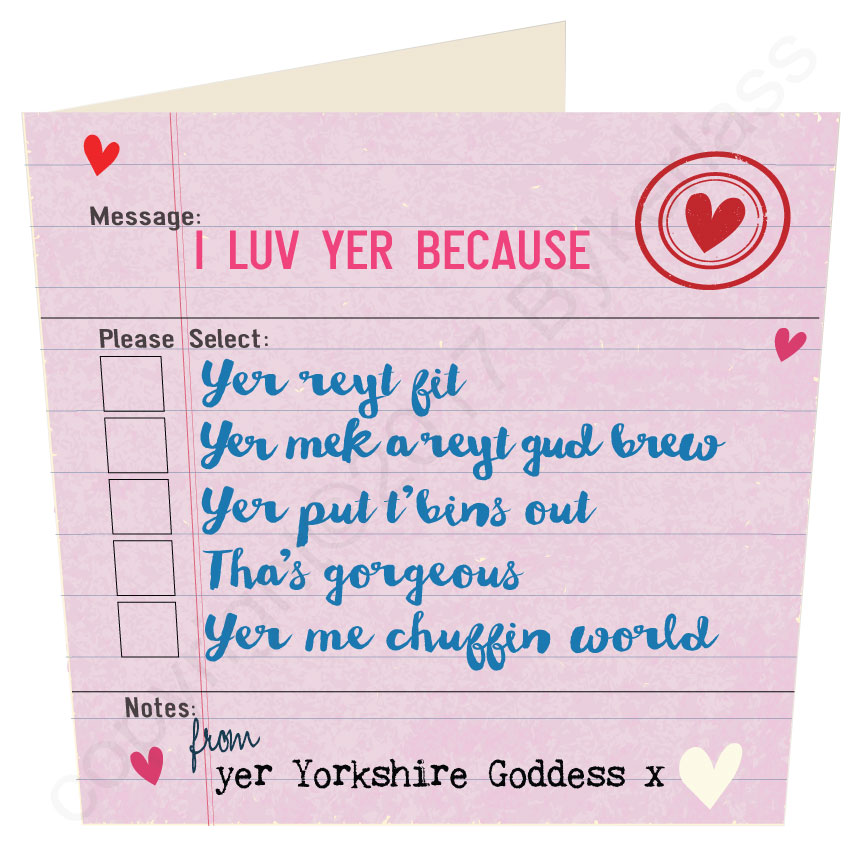 Message:
I LUV YER BECAUSE
Please Select:
Yer reyt fit
Yer mek a reyt gud brew
Yer put t'bins out
Tha's gorgeous
Yer me chuffin world
Notes:
from
yer Yorkshire Goddess x